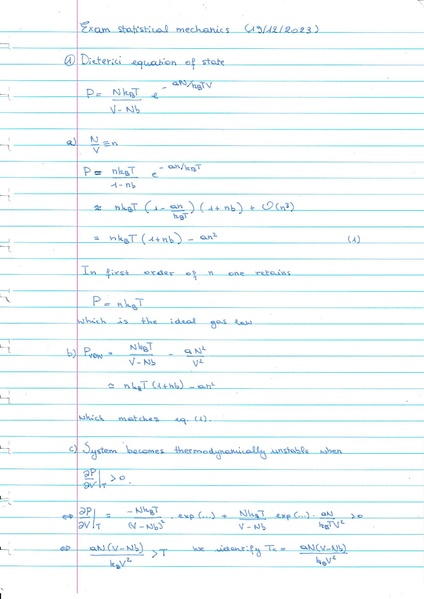 Exam statistical mechanics (19/12/2023)
① Dieterici equation of state
P = Nk_BT/(V-Nb) e^(-aN/k_BTV)
a) N/V ≡ n
P = nk_BT/(1-nb) e^(-an/k_BT)
≈ nk_BT (1 - an/k_BT) (1+nb) + O(n³)
= nk_BT (1+nb) - an² (1)
In first order of n one retains
P = nk_BT
which is the ideal gas law
b) P_VDW = Nk_BT/(V-Nb) - aN²/V²
≈ nk_BT (1+nb) - an²
which matches eq. (1).
c) System becomes thermodynamically unstable when
∂P/∂V|_T > 0.
⇔ ∂P/∂V|_T = -Nk_BT/(V-Nb)² · exp(...) + Nk_BT/(V-Nb) exp(...) · aN/k_BTV² > 0
⇔ aN(V-Nb)/k_BV² > T we identify T_c = aN(V-Nb)/k_BV²